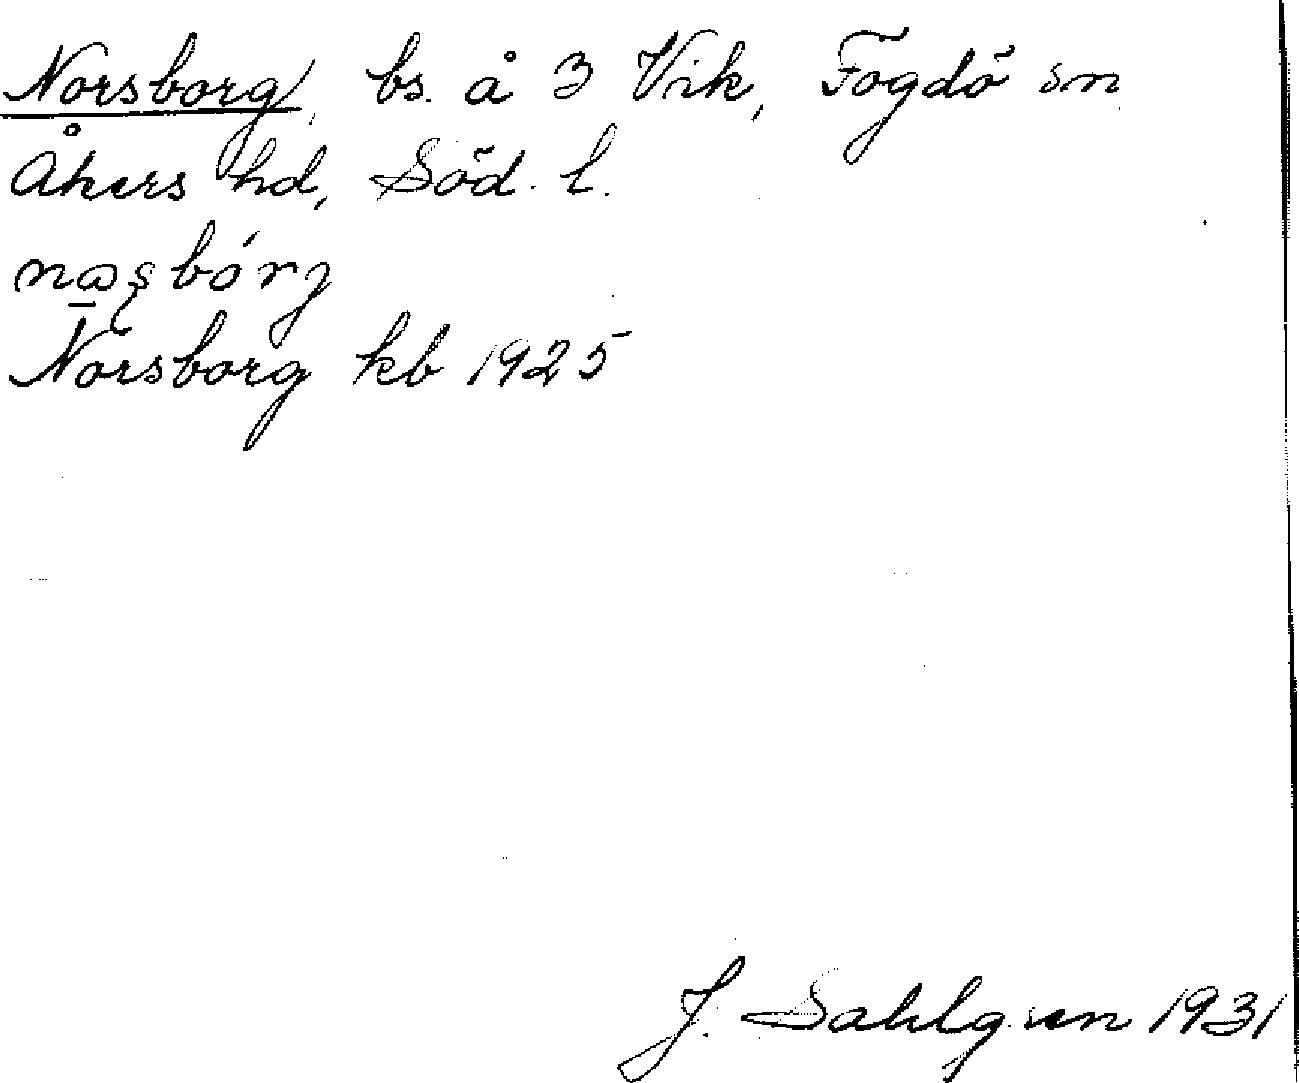 Norsborg, bs. å 3 Vik, Fogdö sn
Åkers hd, Söd. l.
Norsborg kb 1925
J. Sahlgren 1931